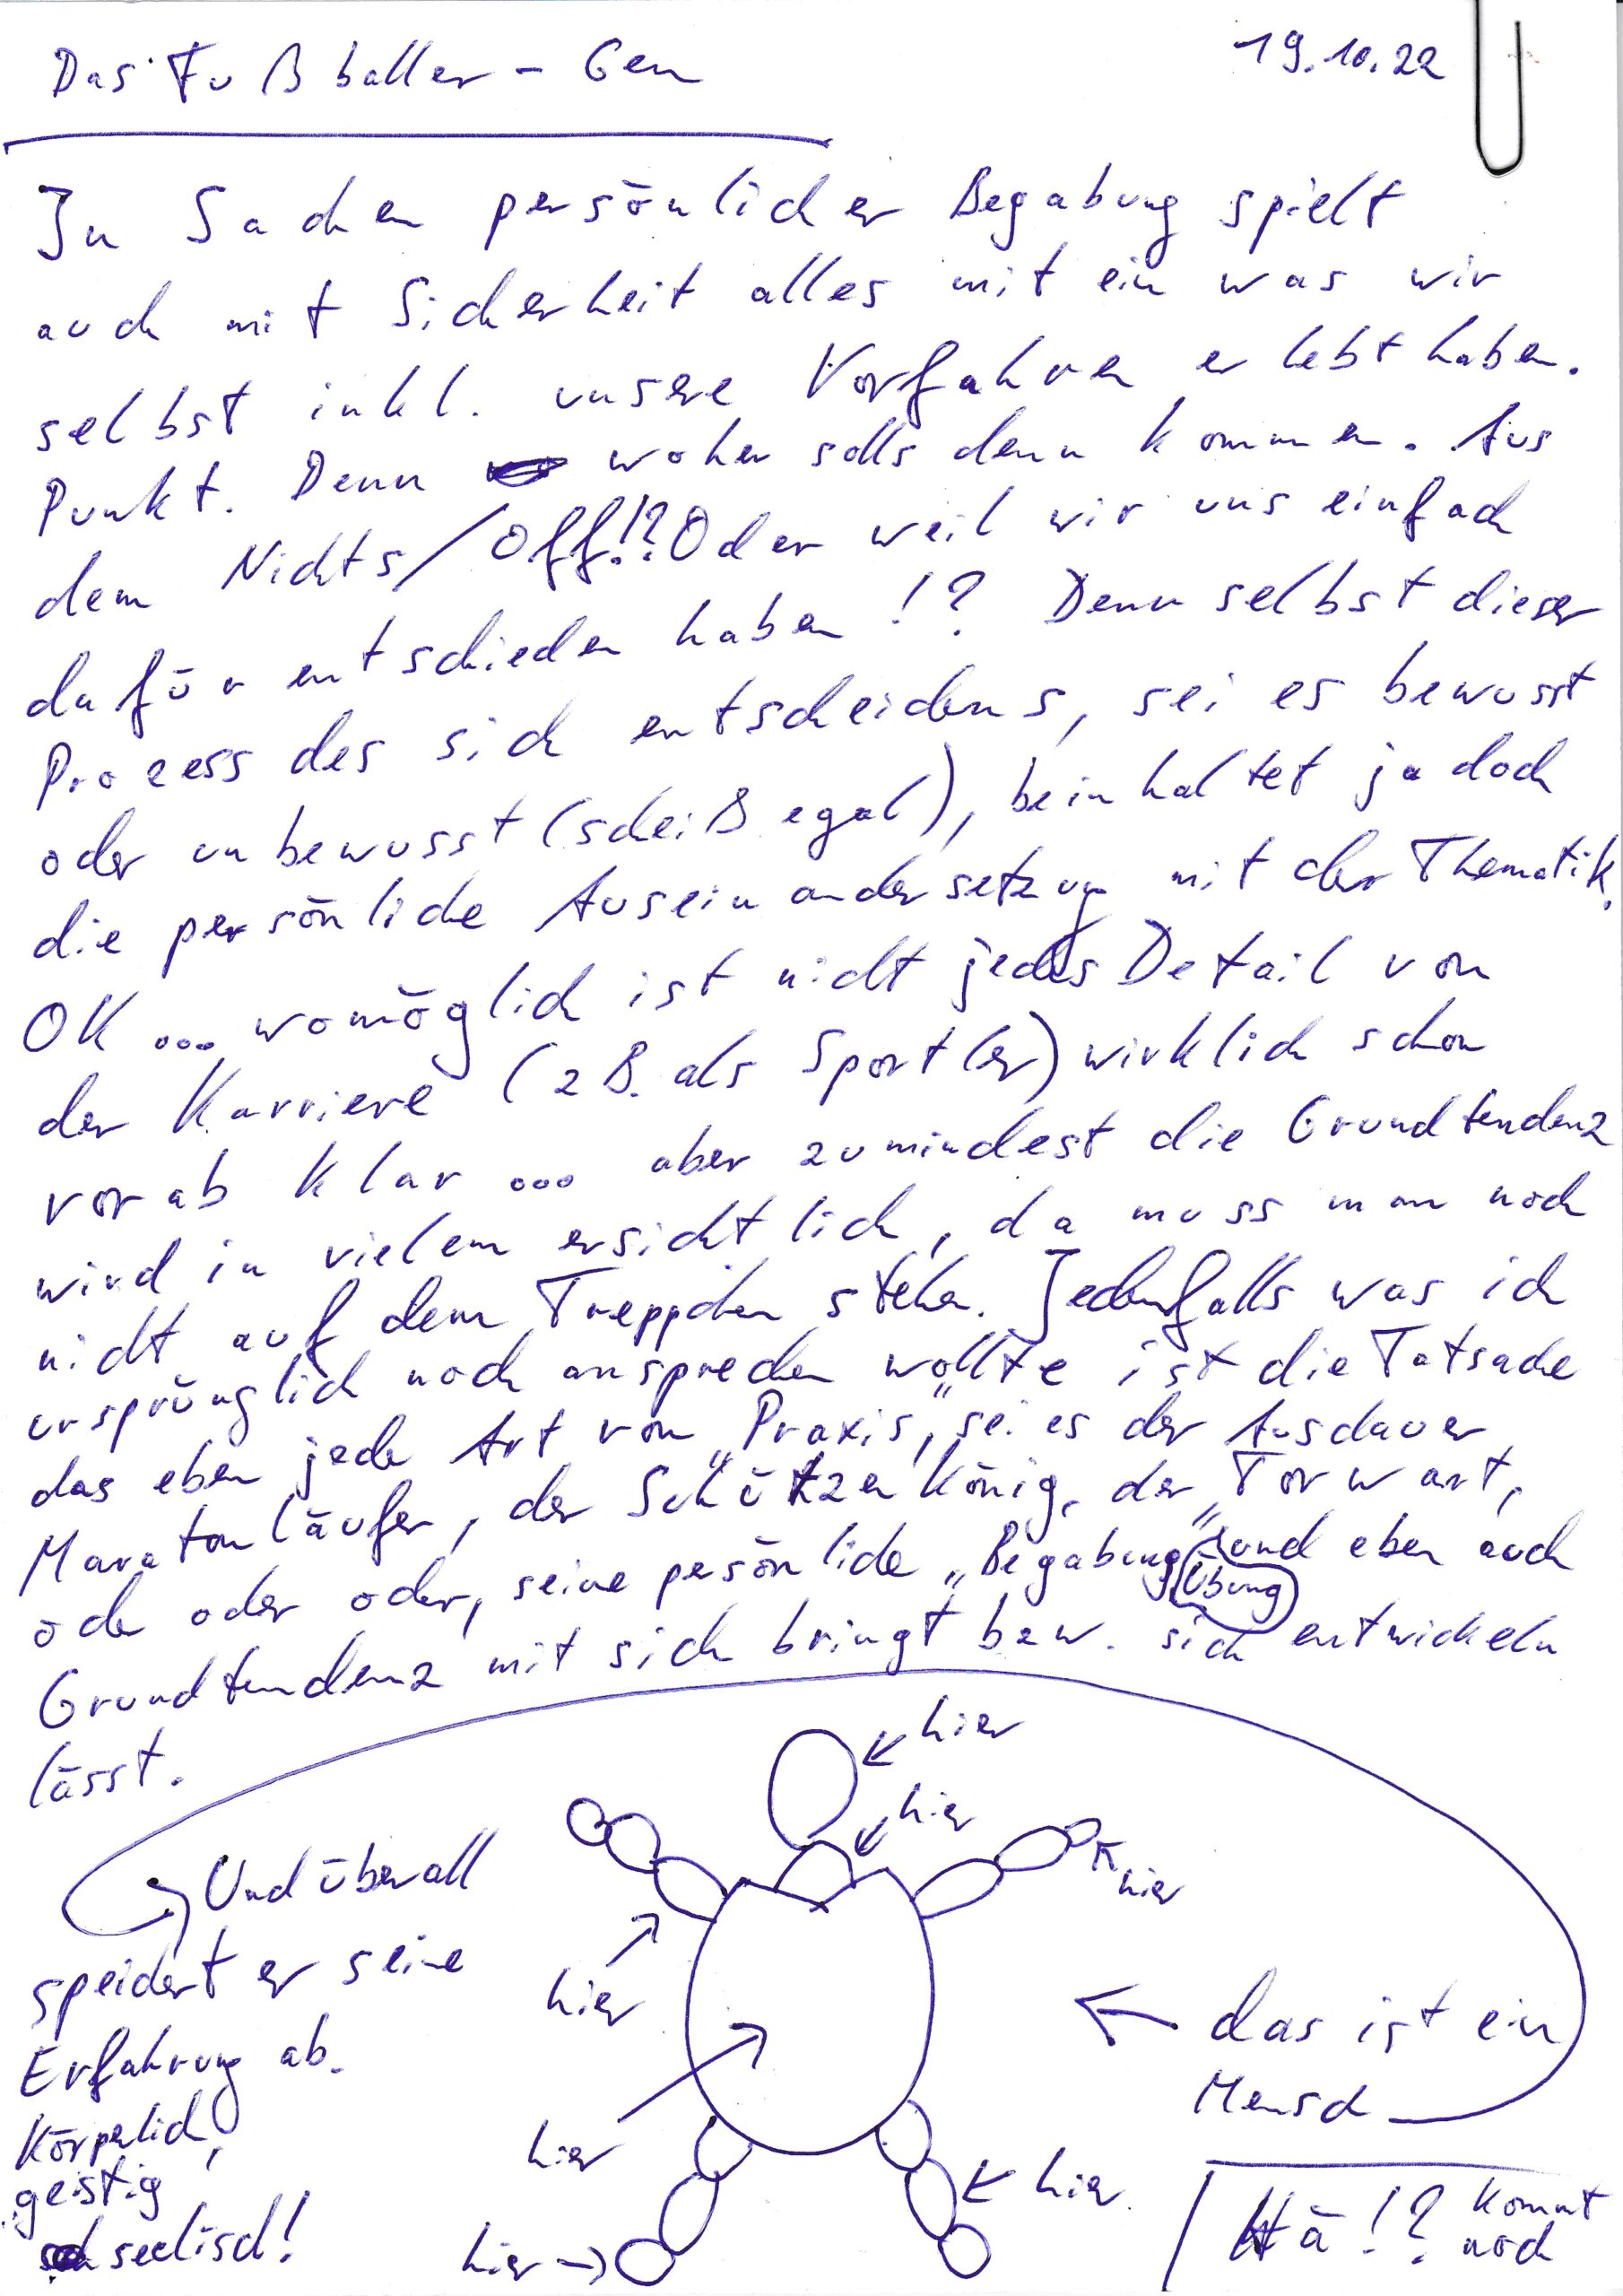 Das Fußballer-Gen
19.10.22
In Sachen persönlicher Begabung spielt
auch mit Sicherheit alles mit ein was wir
selbst inkl. unsere Vorfahren erlebt haben.
Punkt. Denn woher solls denn kommen. Aus
dem Nichts/Off!? Oder weil wir uns einfach
dafür entschieden haben!? Denn selbst dieser
Prozess des sich entscheidens, sei es bewusst
oder unbewusst (scheiß egal), beinhaltet ja doch
die persönliche Auseinandersetzung mit der Thematik.
OK ... womöglich ist nicht jedes Detail von
der Karriere (zB. als Sportler) wirklich schon
vorab klar ... aber zumindest die Grundtendenz
wird in vielem ersichtlich, da muss man noch
nicht auf dem Treppchen stehen. Jedenfalls was ich
ursprünglich noch ansprechen wollte ist die Tatsache
das eben jede Art von „Praxis", sei es der Ausdauer,
Maratonläufer, der Schützenkönig, der „Torwart,
ode oder oder, seine pesönliche „Begabung" und eben auch
Übung
Grundtendenz mit sich bringt bzw. sich entwickeln
lässt.
hier
hier
hier
Und überall
speichert er seine
Erfahrung ab.
Körperlich,
geistig
seelisch!
hier
das ist ein
Mensch
hier
hier
hier
Hä!? kommt
noch